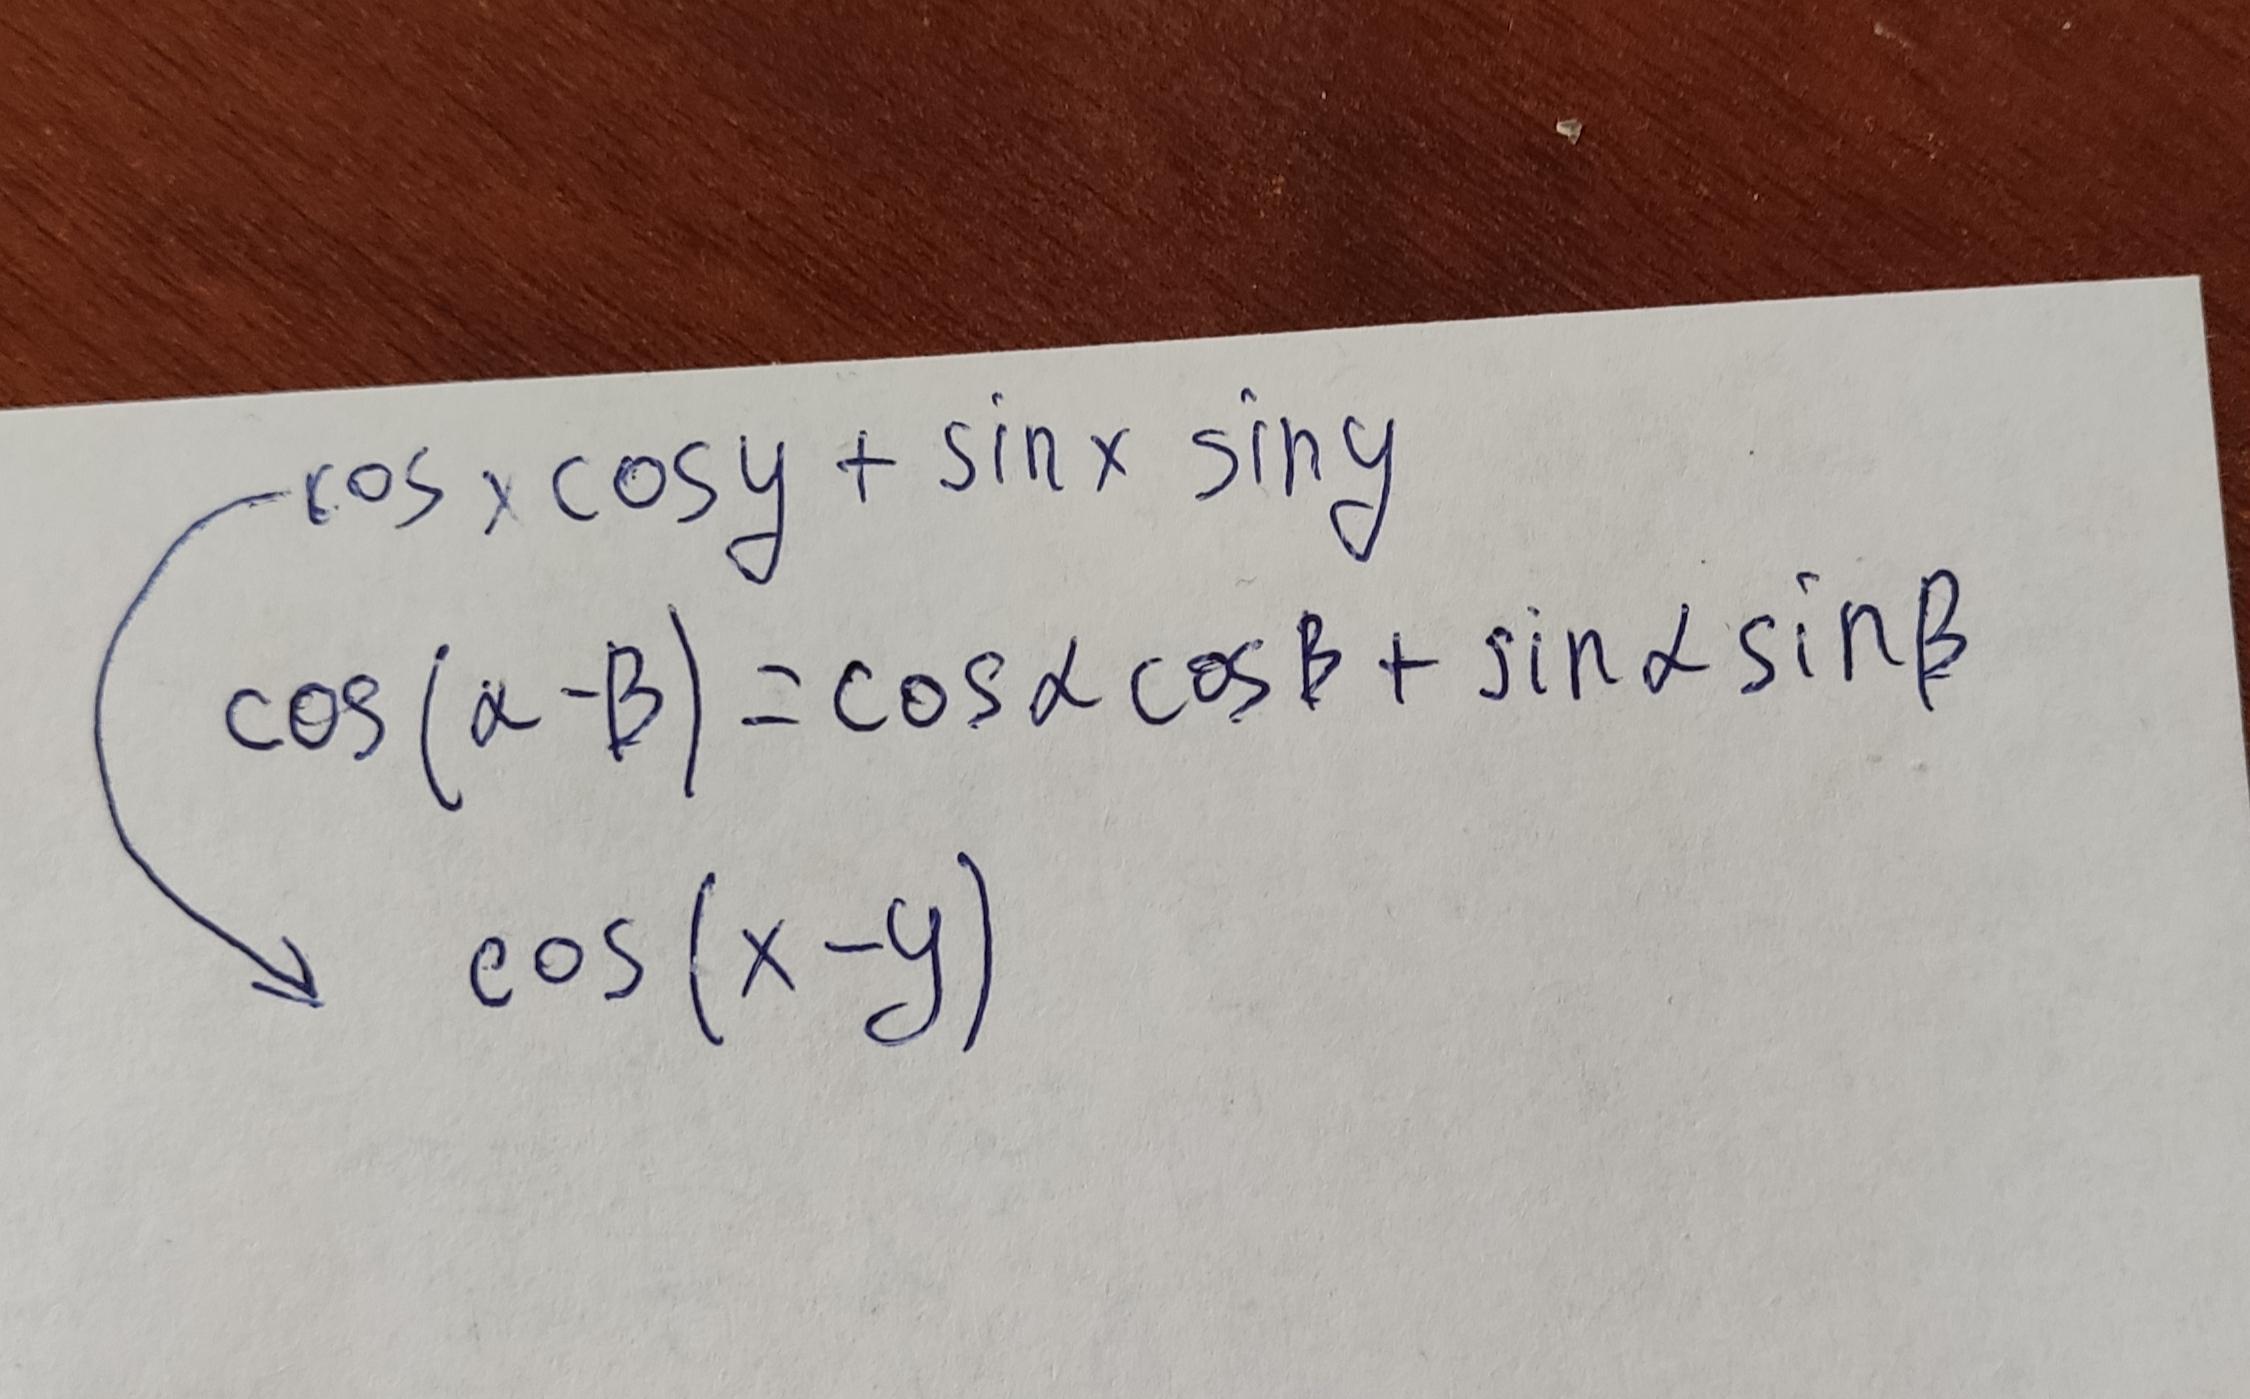 cos x cos y + sin x sin y
cos (α - β) = cos α cos β + sin α sin β
cos (x - y)